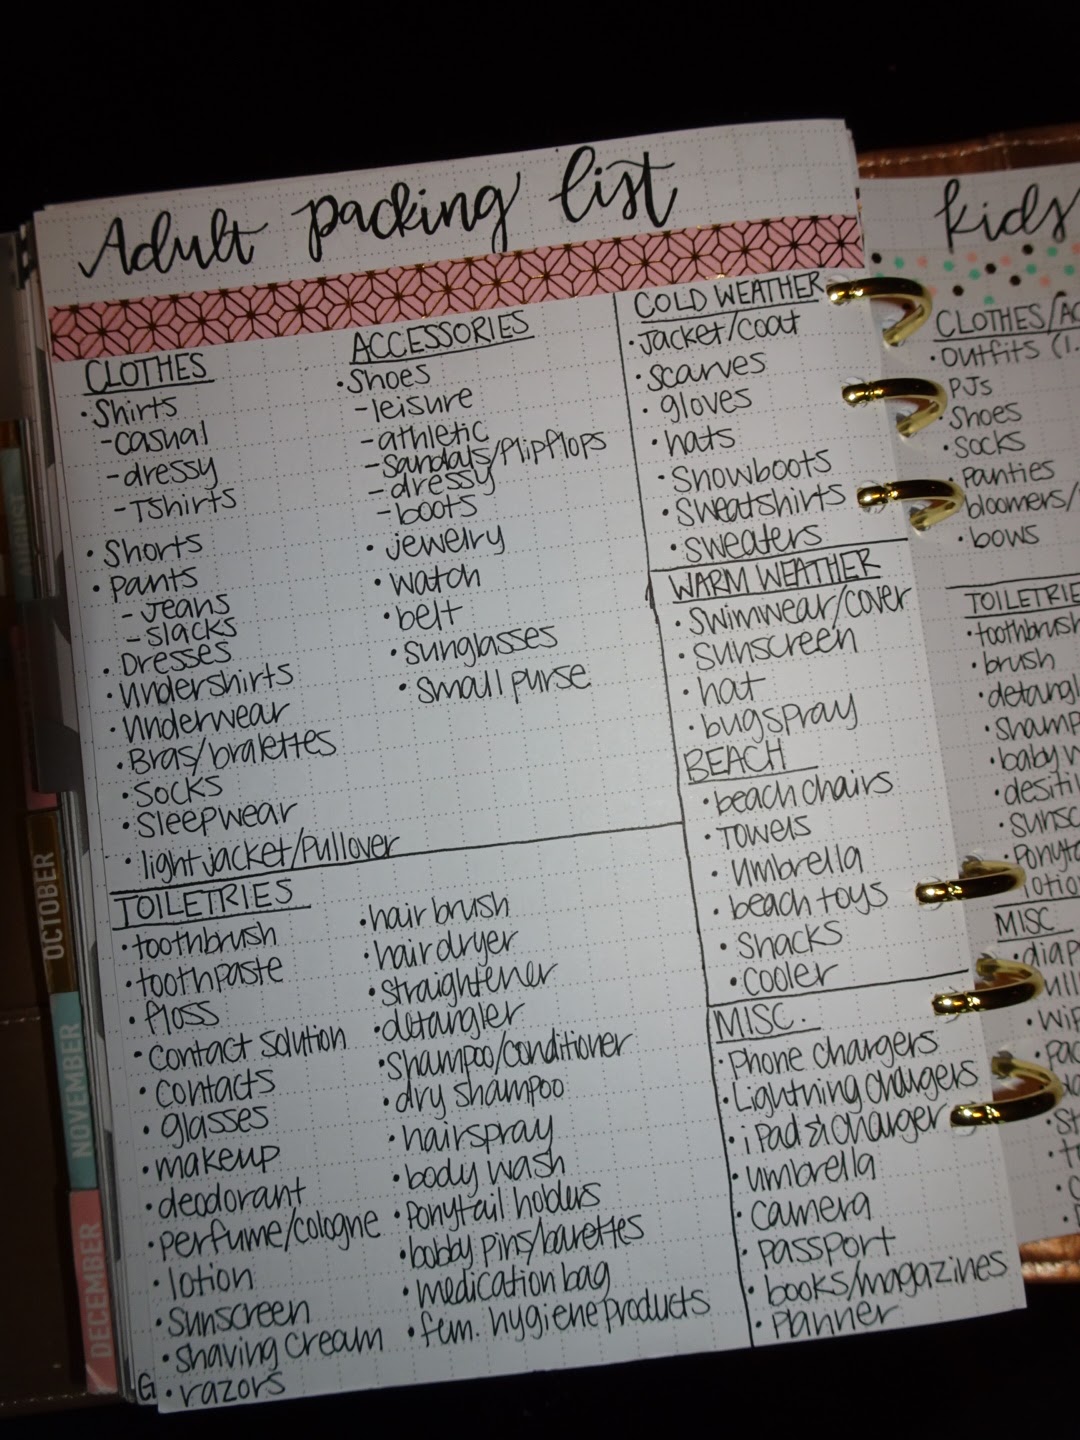 Adult packing list
CLOTHES
• Shirts
- casual
- dressy
- Tshirts
• Shorts
• pants
- jeans
- slacks
• Dresses
• Undershirts
• Underwear
• Bras/bralettes
• Socks
• Sleepwear
• light jacket/Pullover
ACCESSORIES
• Shoes
- leisure
- athletic
- Sandals/flipflops
- dressy
- boots
• jewelry
• watch
• belt
• sunglasses
• small purse
TOILETRIES
• toothbrush
• toothpaste
• floss
• contact solution
• contacts
• glasses
• makeup
• deodorant
• perfume/cologne
• lotion
• sunscreen
• shaving cream
• razors
• hair brush
• hair dryer
• straightener
• detangler
• Shampoo/conditioner
• dry shampoo
• hairspray
• body wash
• Ponytail holders
• bobby pins/barettes
• medication bag
• fem. hygiene products
COLD WEATHER
• Jacket/coat
• scarves
• gloves
• hats
• Snowboots
• sweatshirts
• sweaters
WARM WEATHER
• swimwear/cover
• sunscreen
• hat
• bugspray
BEACH
• beach chairs
• Towels
• Umbrella
• beach toys
• Snacks
• cooler
MISC.
• Phone chargers
• Lightning chargers
• iPad & charger
• umbrella
• camera
• passport
• books/magazines
• planner
kids
CLOTHES/AC
• Outfits (1.
PJs
• Shoes
• Socks
panties
bloomers/
• bows
TOILETRIE
• toothbrush
• brush
• detangl
• shamp
• baby w
• desiti
• sunsc
• Ponyta
lotion
MISC
• diap
• Wip
OCTOBER
NOVEMBER
DECEMBER
G